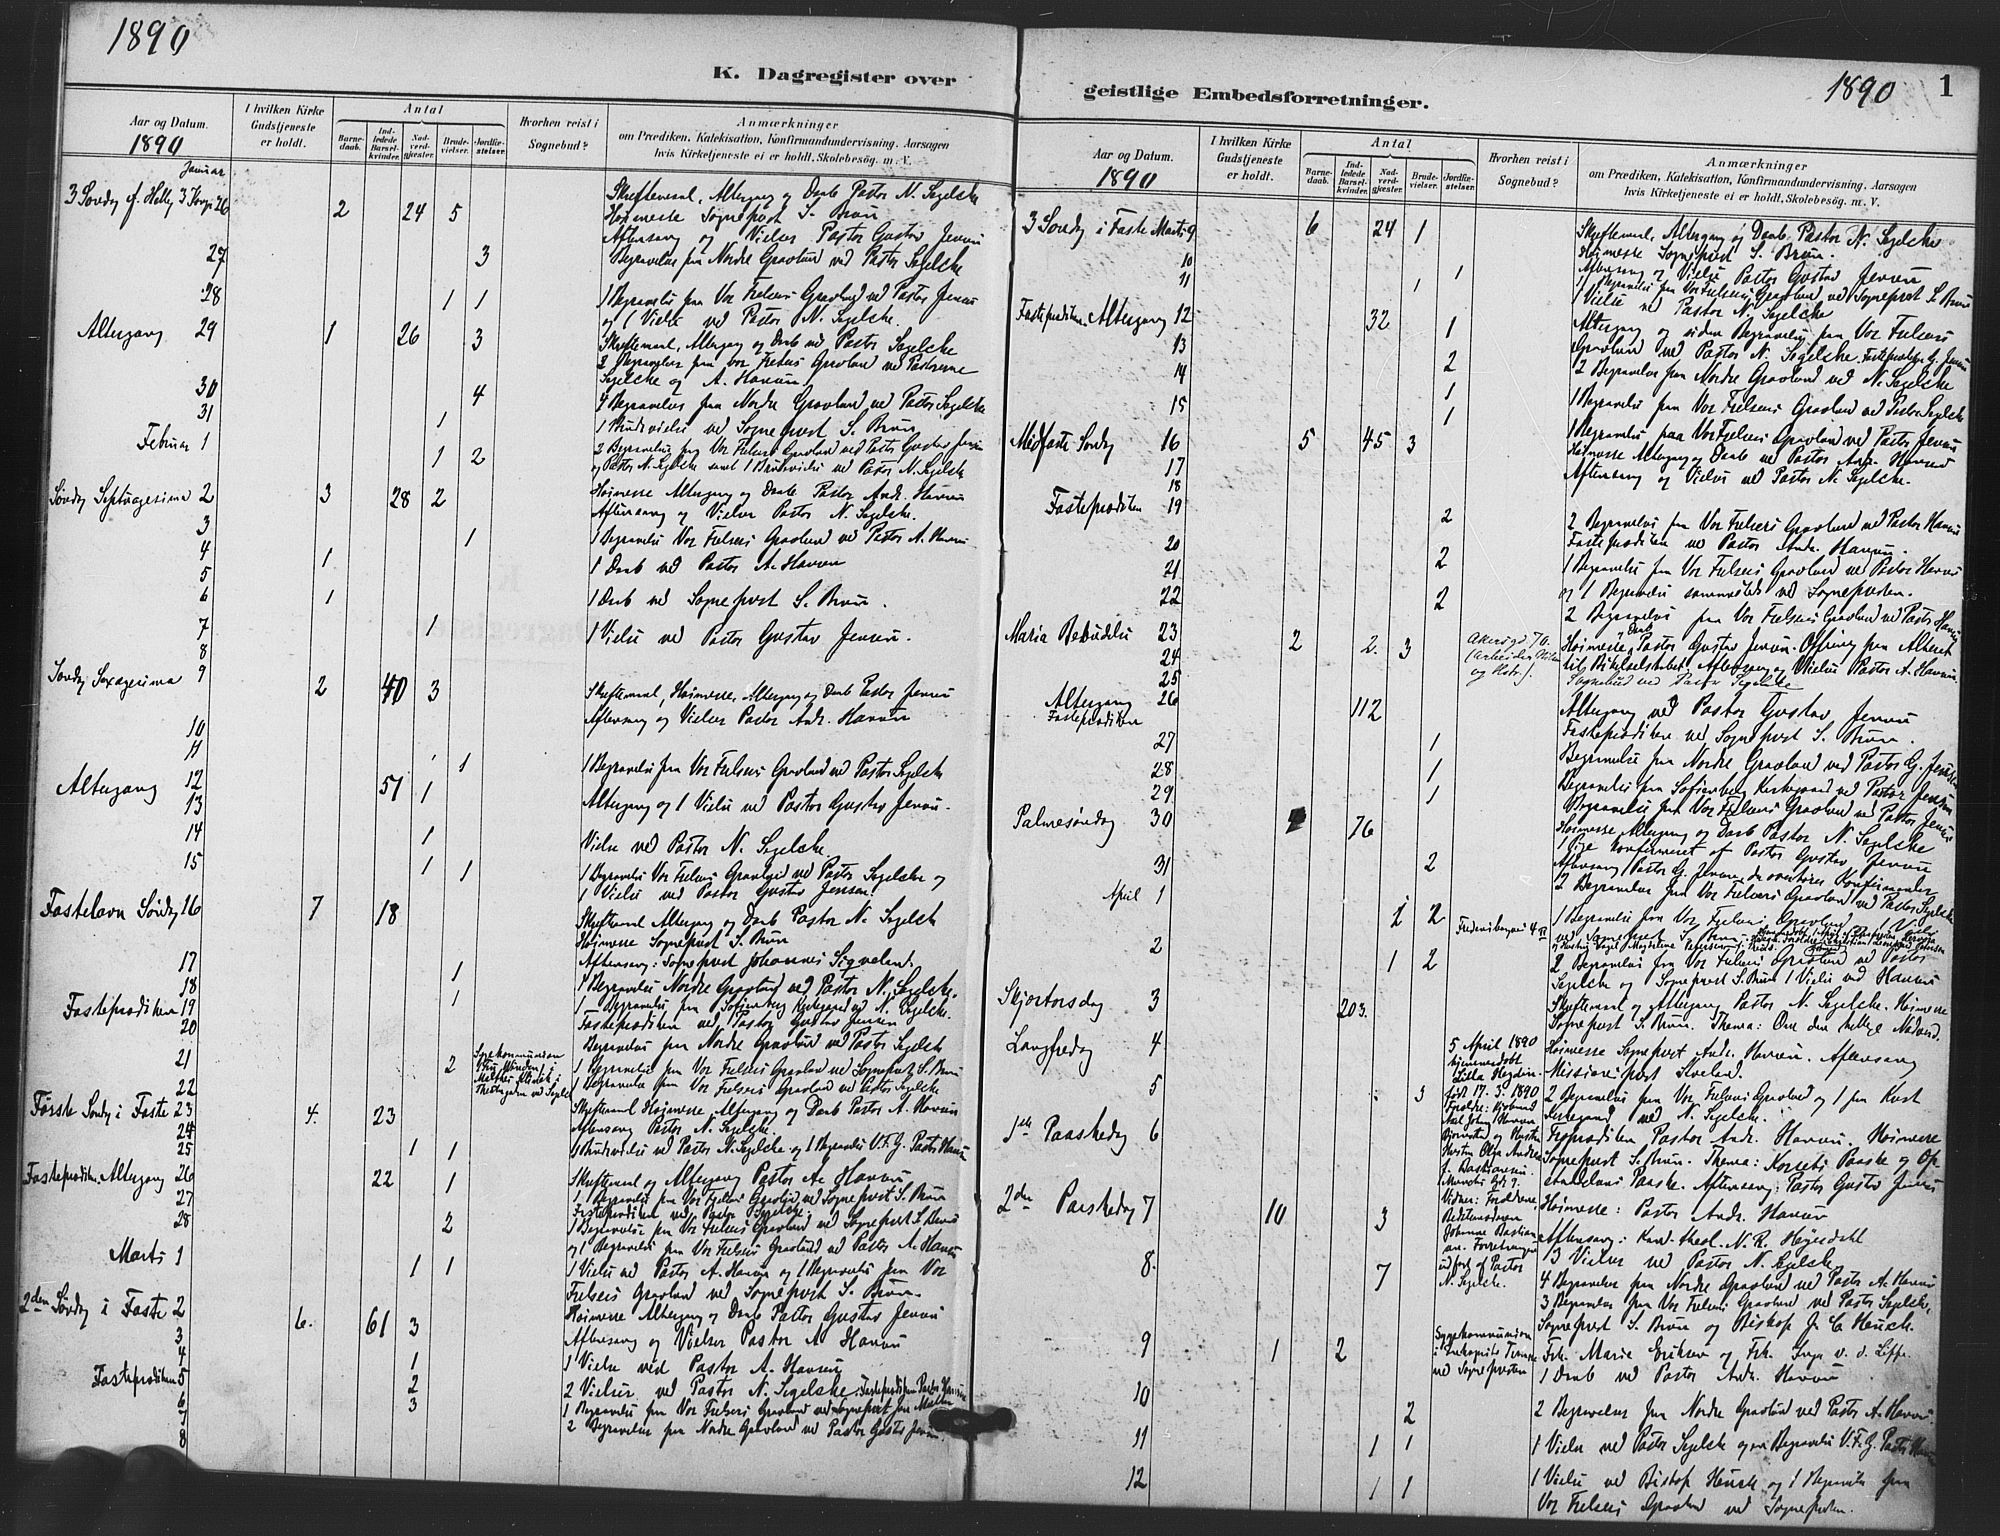 1890
K. Dagregister over
Aar og Datum.
1890
I hvilken Kirke
Gudstjeneste
er holdt.
Antal
Barne-
daab.
Ind-
ledede
Barsel-
kvinder.
Nad-
verd-
gjæster.
Brude-
vielser.
Jordfæ-
stelser.
Hvorhen reist i
Sognebud?
Anmærkninger
om Prædiken, Katekisation, Konfirmandundervisning, Aarsagen
hvis Kirketjeneste ei er holdt, Skolebesøg. m. V.
Januar
26 2 24 5 Skriftemaal, Altergang og Daab Pastor N. Segelcke
Høimesse Sogneprest S. Brun
Aftensang og Vielser Pastor Gustav Jensen
27 3 Begravelser fra Nordre Gravlund ved Pastor Segelcke
28 1 1 1 Begravelse fra Vor Frelsers Gravlund ved Pastor Jensen
og 1 Vielse ved Pastor N. Segelcke.
Altergang 29 1 26 3 Skriftemaal, Altergang og Daab ved Pastor Segelcke
2 Begravelser fra Vor Frelsers Gravlund ved Pastorerne
Segelcke og A. Hansen
30 4 4 Begravelser fra Nordre Gravlund ved Pastor Segelcke
31 1 1 Brudevielse ved Sogneprest S. Brun
Februar 1 1 2 2 Begravelser fra Vor Frelsers Gravlund ved Pastor Gustav Jensen
og Pastor N. Segelcke samt 1 Brudevielse ved Pastor N. Segelcke
Søndag Septuagesima 2 3 28 2 Høimesse Altergang og Daab Pastor Andr. Hansen
Aftensang og Vielser Pastor N. Segelcke.
3 1 1 Begravelse Vor Frelsers Gravlund ved Pastor A. Hansen
4 1 1 Daab ved Pastor A. Hansen
5
6 1 1 Daab ved Sogneprest S. Brun.
7 1 1 Vielse ved Pastor Gustav Jensen.
8
Søndag Sexagesima 9 2 40 3 Skriftemaal, Høimesse, Altergang og Daab Pastor Jensen
Aftensang og Vielser Pastor Andr. Hansen
10
11 1 1 Begravelse fra Vor Frelsers Gravlund ved Pastor Segelcke
Altergang 12 51 1 Altergang og 1 Vielse ved Pastor Gustav Jensen.
13
14 1 Vielse ved Pastor N. Segelcke.
15 1 1 1 Begravelse Vor Frelsers Gravlund ved Pastor Segelcke og
1 Vielse ved Pastor Gustav Jensen.
Fastelavn Søndag 16 7 18 Skriftemaal Altergang og Daab Pastor N. Segelcke
Høimesse Sogneprest S. Brun
Aftensang: Sogneprest Johannes Sigveland.
17 1 1 Begravelse Nordre Gravlund ved Pastor N. Segelcke.
18 1 1 Begravelse fra Sofienberg Kirkegaard ved N. Segelcke.
Fasteprædiken 19 Fasteprædiken ved Pastor Gustav Jensen
20 Begravelse fra Nordre Gravlund ved Pastor Segelcke
21 2 1 Begravelse fra Vor Frelsers Gravlund ved Sogneprest S. Brun
22 1 Begravelse fra Vor Frelsers Gravlund ved Pastor Segelcke
Første Søndag i Faste 23 4. 23 Skriftemaal Høimesse Altergang og Daab Pastor A. Hansen
24 Aftensang Pastor N. Segelcke.
25 1 1 1 Brudevielse ved Pastor N. Segelcke og 1 Begravelse V.F.G. Pastor Hansen
Fasteprædiken. Altergang 26 22 1 Skriftemaal og Altergang Pastor A. Hansen
27 1 Begravelse fra Vor Frelsers Gravlund ved Sogneprest S. Brun
28 2 1 Begravelse fra Vor Frelsers Gravlund ved Sogneprest S. Brun
og 1 Begravelse fra Vor Frelsers Gravlund ved Pastor A. Hansen
Marts 1 1 1 1 Vielse ved Pastor A. Hansen og 1 Begravelse fra Vor
Frelsers Gravlund ved Sogneprest S. Brun.
2den Søndag i Faste 2 6. 61 3 Høimesse Altergang og Daab Pastor Gustav Jensen
3 Aftensang og Vielser Pastor A. Hansen
4 1 1 Vielse ved Pastor A. Hansen
Fasteprædiken 5 2 2 Vielser ved Pastor N. Segelcke. Fasteprædiken Pastor Hansen
6 3 1 Begravelse fra Vor Frelsers Gravlund ved Sogneprest
7 2 Begravelser fra Nordre Gravlund ved Pastor Gustav Jensen.
8
1890 1
geistlige Embedsforretninger.
Aar og Datum.
1890
I hvilken Kirke
Gudstjeneste
er holdt.
Antal
Barne-
daab.
Ind-
ledede
Barsel-
kvinder.
Nad-
verd-
gjæster.
Brude-
vielser.
Jordfæ-
stelser
Hvorhen reist i
Sognebud?
Anmærkninger
om Prædiken, Katekisation, Konfirmandundervisning, Aarsagen
hvis Kirketjeneste ei er holdt, Skolebesøg. m. V.
3 Søndag i Faste Marts 9 6 24 1 Skriftemaal, Altergang og Daab Pastor N. Segelcke
Høimesse Sogneprest S. Brun.
10 Aftensang og Vielse Pastor Gustav Jensen
11 1 1 1 Begravelse fra Vor Frelsers Gravlund ved Sogneprest S. Brun
1 Vielse ved Pastor N. Segelcke
Fasteprædiken. Altergang 12 32 1 Altergang og siden Begravelse fra Vor Frelsers
Gravlund ved Pastor N. Segelcke. Fasteprædiken G. Jensen
13 2 2 Begravelser fra Nordre Gravlund ved N. Segelcke
14 1 1 Begravelse fra Vor Frelsers Gravlund ved Pastor Segelcke
15 1 1 Begravelse fra Vor Frelsers Gravlund ved Pastor Jensen
Midfaste Søndag 16 5 45 3 Høimesse Altergang og Daab ved Pastor Andr. Hansen
17 Aftensang og Vielser ved Pastor N. Segelcke.
18
Fasteprædiken 19 2 2 Begravelser fra Vor Frelsers Gravlund ved Pastor Hansen
Fasteprædiken ved Pastor Andr. Hansen.
20 2 1 Begravelse fra Vor Frelsers Gravlund ved Pastor Hansen
21 og 1 Begravelse sammesteds ved Sognepresten.
22 2 2 Begravelser fra Vor Frelsers Gravlund ved Pastor Hansen
Maria Bebudelse 23 2 2. 3 Høimesse, Daab Pastor Gustav Jensen. Offring
24 Aftensang og Vielser Pastor A. Hansen.
25 Sognebud ved Pastor Segelcke
Altergang 26 112 Altergang ved Pastor Gustav Jensen
Fasteprædiken Fasteprædiken ved Sogneprest S. Brun.
27 1 Begravelse fra Nordre Gravlund ved Pastor G. Jensen
28 1 Begravelse fra Sofienberg Kirkegaard ved Pastor Jensen
29 1 Begravelse fra Vor Frelsers Gravlund ved Pastor Jensen
Palmesøndag 30 76 Høimesse Altergang og Daab Pastor N. Segelcke
1 Pige konfirmeret af Pastor Gustav Jensen
31 2 Aftensang Pastor G. Jensen
2 Begravelser fra Vor Frelsers Gravlund ved Pastor Segelcke
April 1 2 1 Begravelse fra Vor Frelsers Gravlund 1 Vielse
ved Sogneprest S. Brun
2 1 2 2 Begravelser fra Vor Frelsers Gravlund ved Pastor
Segelcke og Sogneprest S. Brun 1 Vielse ved Hansen
Skjærtorsdag 3 203. Skriftemaal og Altergang Pastor N. Segelcke. Høimesse
Sogneprest S. Brun. Thema: Om den hellige Nadverd.
Langfredag 4 Høimesse Sogneprest Andr. Hansen. Aftensang
Missionsprest
5 April 1890
hjemmedøbt
født 17. 3. 1890
5 3 2 Begravelser fra Vor Frelsers Gravlund og 1 fra Krist
Kirkegaard ved N. Segelcke.
1ste Paaskedag 6 Froprædiken Pastor Andr. Hansen. Høimesse
Sogneprest S. Brun. Thema: Korsets Paaske og Op-
standelsens Paaske. Aftensang: Pastor Gustav Jensen
2den Paaskedag 7 10 3 Høimesse: Pastor Andr. Hansen
Aftensang: Kand. theol. N. R.
3 Vielser ved Pastor N. Segelcke
8. 7 4 Begravelser fra Nordre Gravlund ved Pastor A. Hansen
3 Begravelser fra Vor Frelsers Gravlund ved Pastor Segelcke,
Sogneprest S. Brun og Biskop J. C. Heuch.
9 1 2 Frk. Marie Eriksen og Frk. Inga v. d. Lippe.
1 Daab ved Pastor Andr. Hansen
10 2 2 Begravelser fra Nordre Gravlund ved Pastor A. Hansen.
11 1 1 1 Vielse ved Pastor Segelcke og Begravelse V.F.G. Pastor Hansen
12 1 1 1 Vielse ved Biskop Heuch og 1 Begravelse fra
Vor Frelsers Gravlund ved Sognepresten.